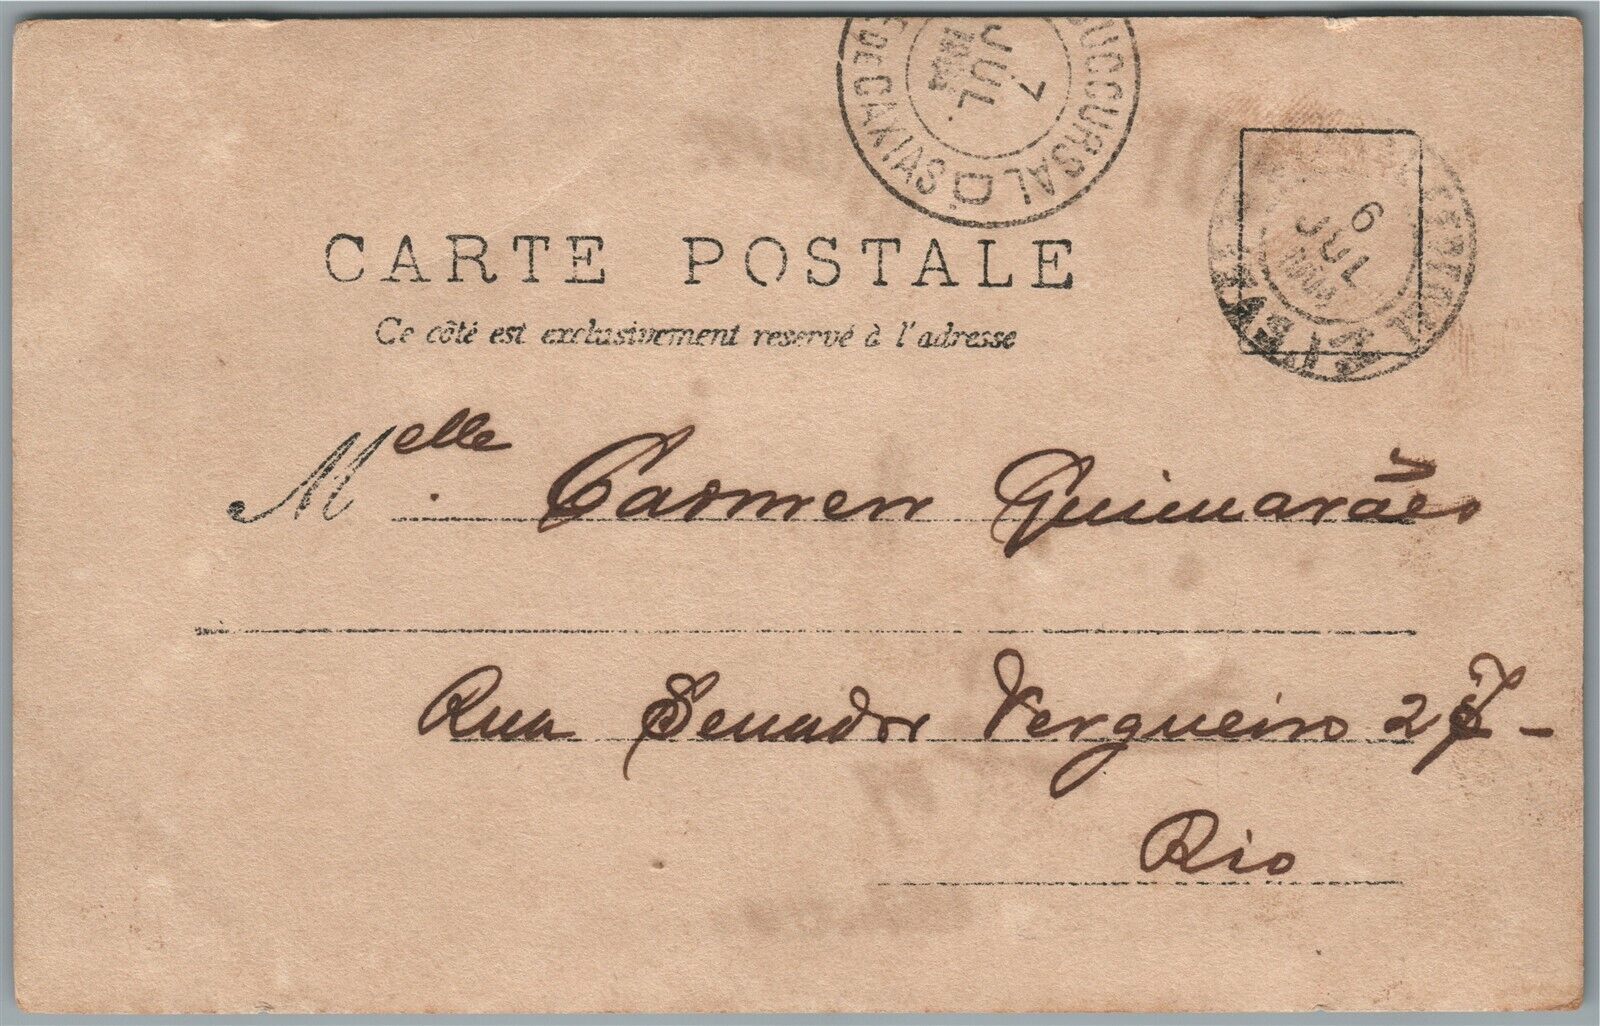 SUCCURSAL DE CAXIAS
7
JUL
1904
6
JUL
CARTE POSTALE
Ce côté est exclusivement reservé à l'adresse
Melle Carmen Guimarães
Rua Senador Vergueiro
Rio